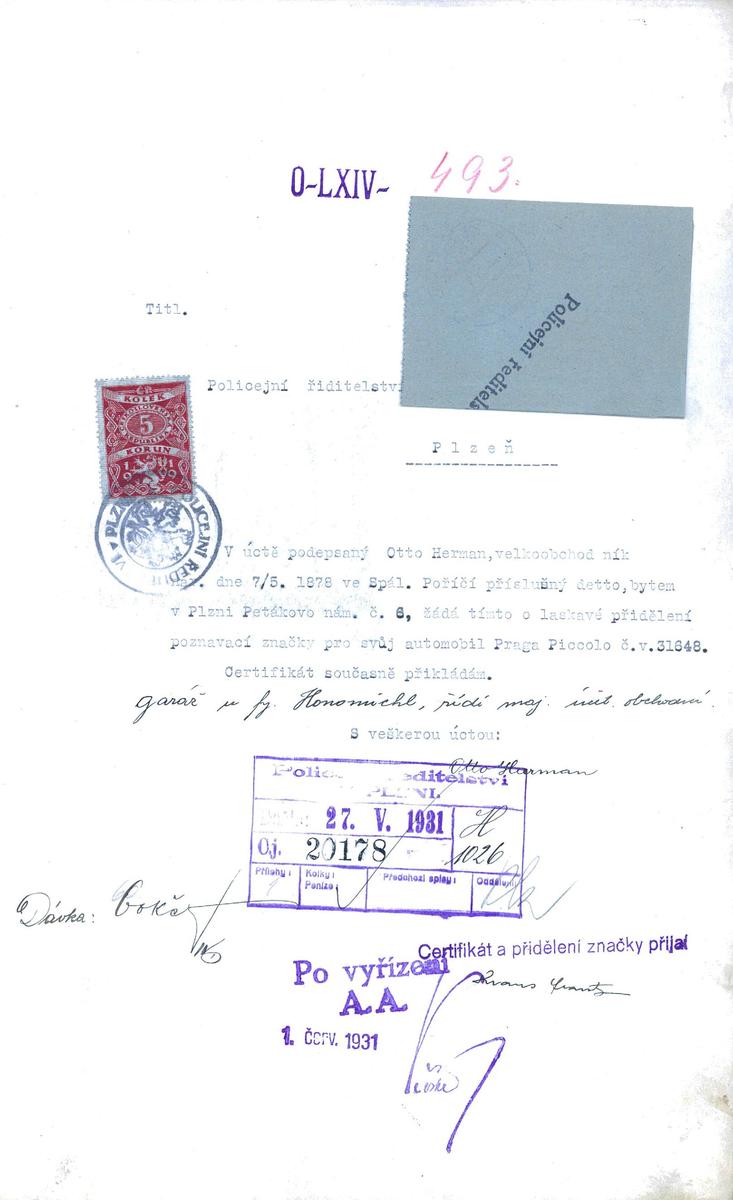 O-LXIV- 493.
Titl.
Policejní ředitels
Policejní řiditelství
ČR
KOLEK
5
KORUN
Plzeň
V úctě podepsaný Otto Herman,velkoobchod ník
dne 7/5. 1878 ve Spál. Poříčí příslušný detto,bytem
v Plzni Petákovo nám. č. 6, žádá tímto o laskavé přidělení
poznavací značky pro svůj automobil Praga Piccolo č.v.31648.
Certifikát současně přikládám.
garáž u fy. Honomichl, řídí maj. inst. obchodní.
S veškerou úctou:
Otto Herman
Policejní ředitelství
PLZNI.
27. V. 1931 H
Čj. 20178 1026
Přílohy: 1 Kolky: Peníze: Předchozí spisy: Oddělení
Dávka: 60 Kč
Certifikát a přidělení značky přijal
Po vyřízení
A.A.
1. ČERV. 1931